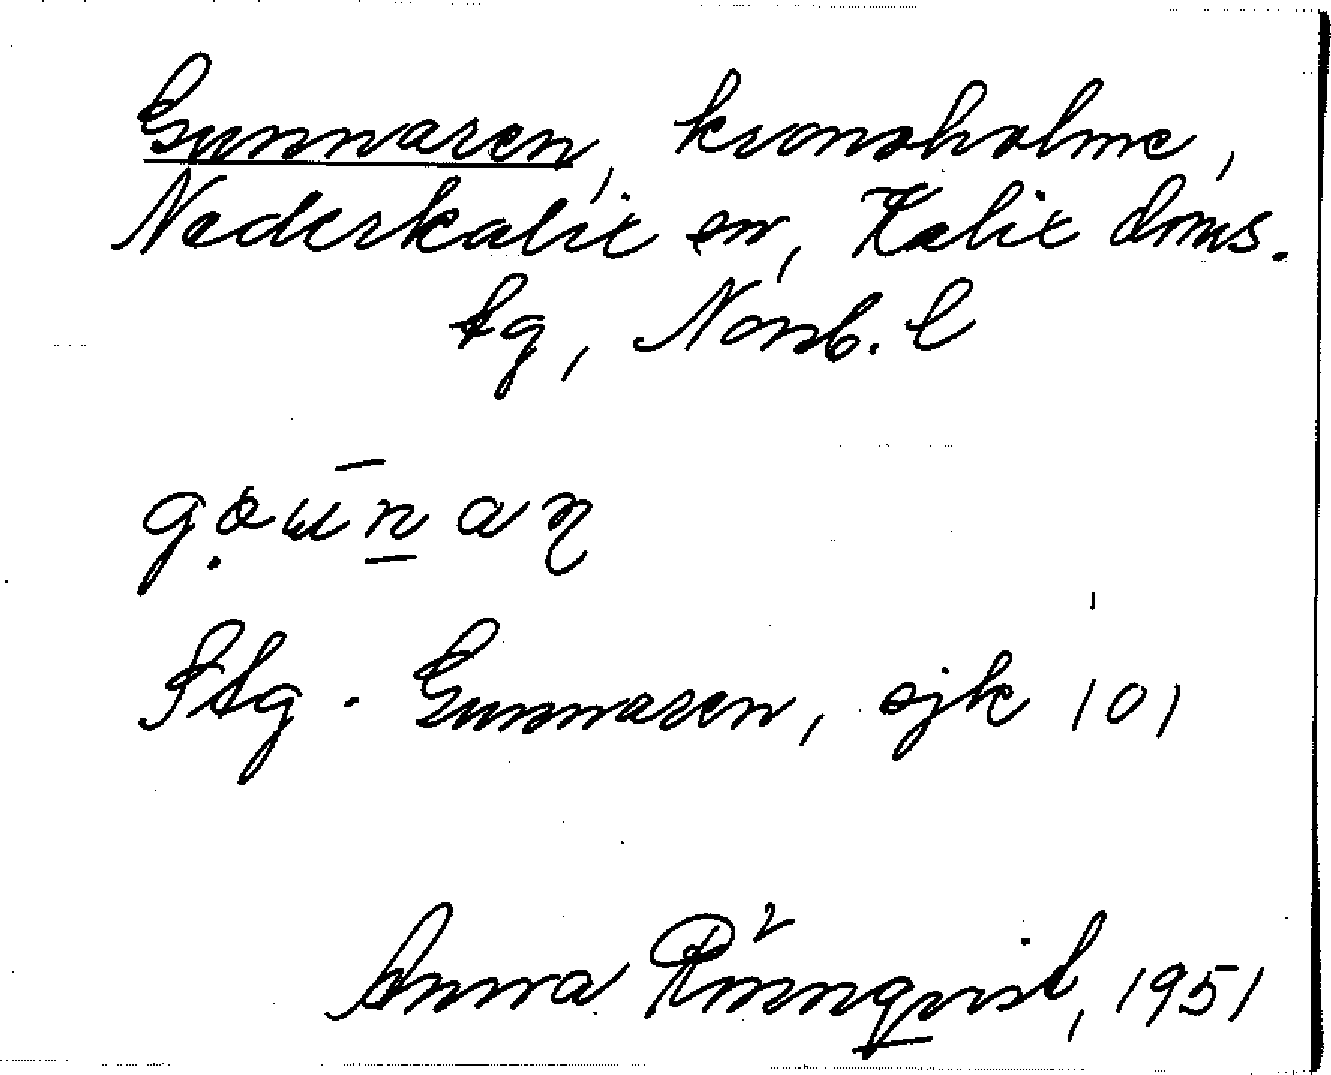 Gunnaren, kronoholme,
Nederkalix sn, Kalix doms.
tg, Norrb. l
Stg. Gunnaren, sjk 101
Anna Rönnqvist, 1951